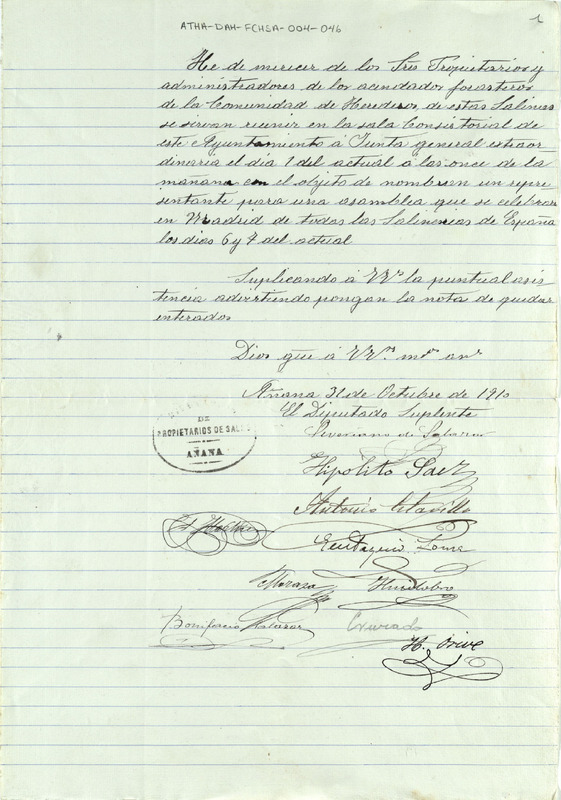 1
ATHA-DAH-FCHSA-004-046
He de merecer de los Sres Propietarios y
administradores de los acendados forasteros
de la Comunidad de Herederos de estas Salinas
se sirvan reunir en la sala Consistorial de
este Ayuntamiento á Junta general extraor
dinaria el dia 1 del actual á las once de la
mañana con el objeto de nombrar un repre
sentante para una asamblea que se celebrara
en Madrid de todas las Salineras de España
los dias 6 y 7 del actual
Suplicando á VV. la puntual asis
tencia advirtiendo pongan la nota de quedar
enterados
Dios gue á VV. ms as
Añana 31 de Octubre de 1910
El Diputado Suplente
DE
PROPIETARIOS DE SAL
AÑANA.
Severiano de Salazar
Hipolito Saez
Antonio
Eustaquio
Moraza Huidobro
Bonifacio Salazar
H. Orive